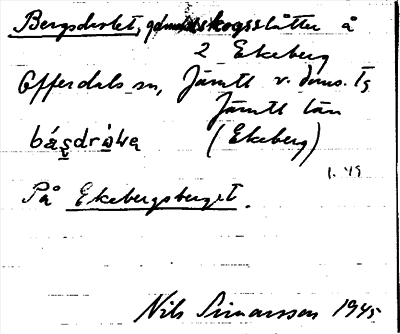 Bergsdrotet, skogsslåtter å
2 Ekeberg
Offerdals sn, Jämtl v. doms. Tg
Jämtl län
(Ekeberg)
1. 49
På Ekebergsberget.
Nils Simonsson 1945